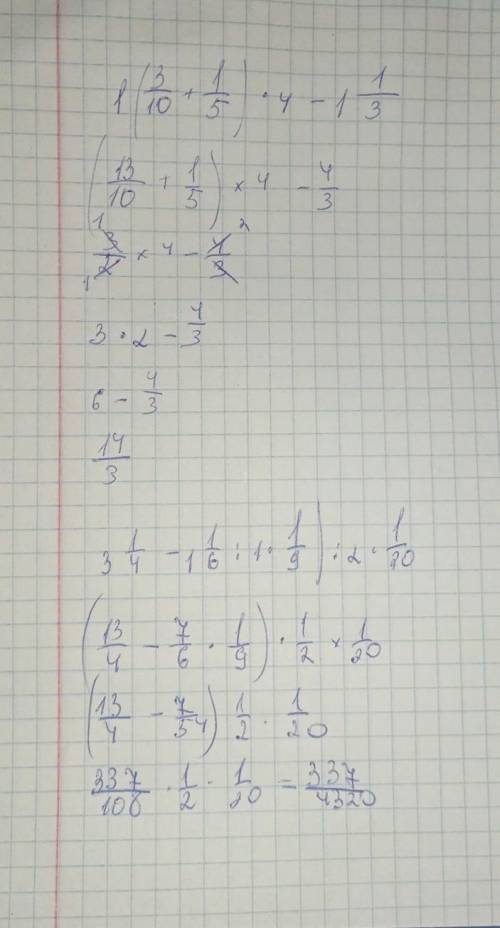 1(3/10 + 1/5) · 4 - 1 1/3
(13/10 + 1/5) × 4 - 4/3
3/2 × 4 - 4/3
3 · 2 - 4/3
6 - 4/3
14/3
3 1/4 - 1 1/6 : 1 · 1/9) : 2 · 1/20
(13/4 - 7/6 · 1/9) · 1/2 × 1/20
(13/4 - 7/54) 1/2 · 1/20
337/108 · 1/2 · 1/20 = 337/4320